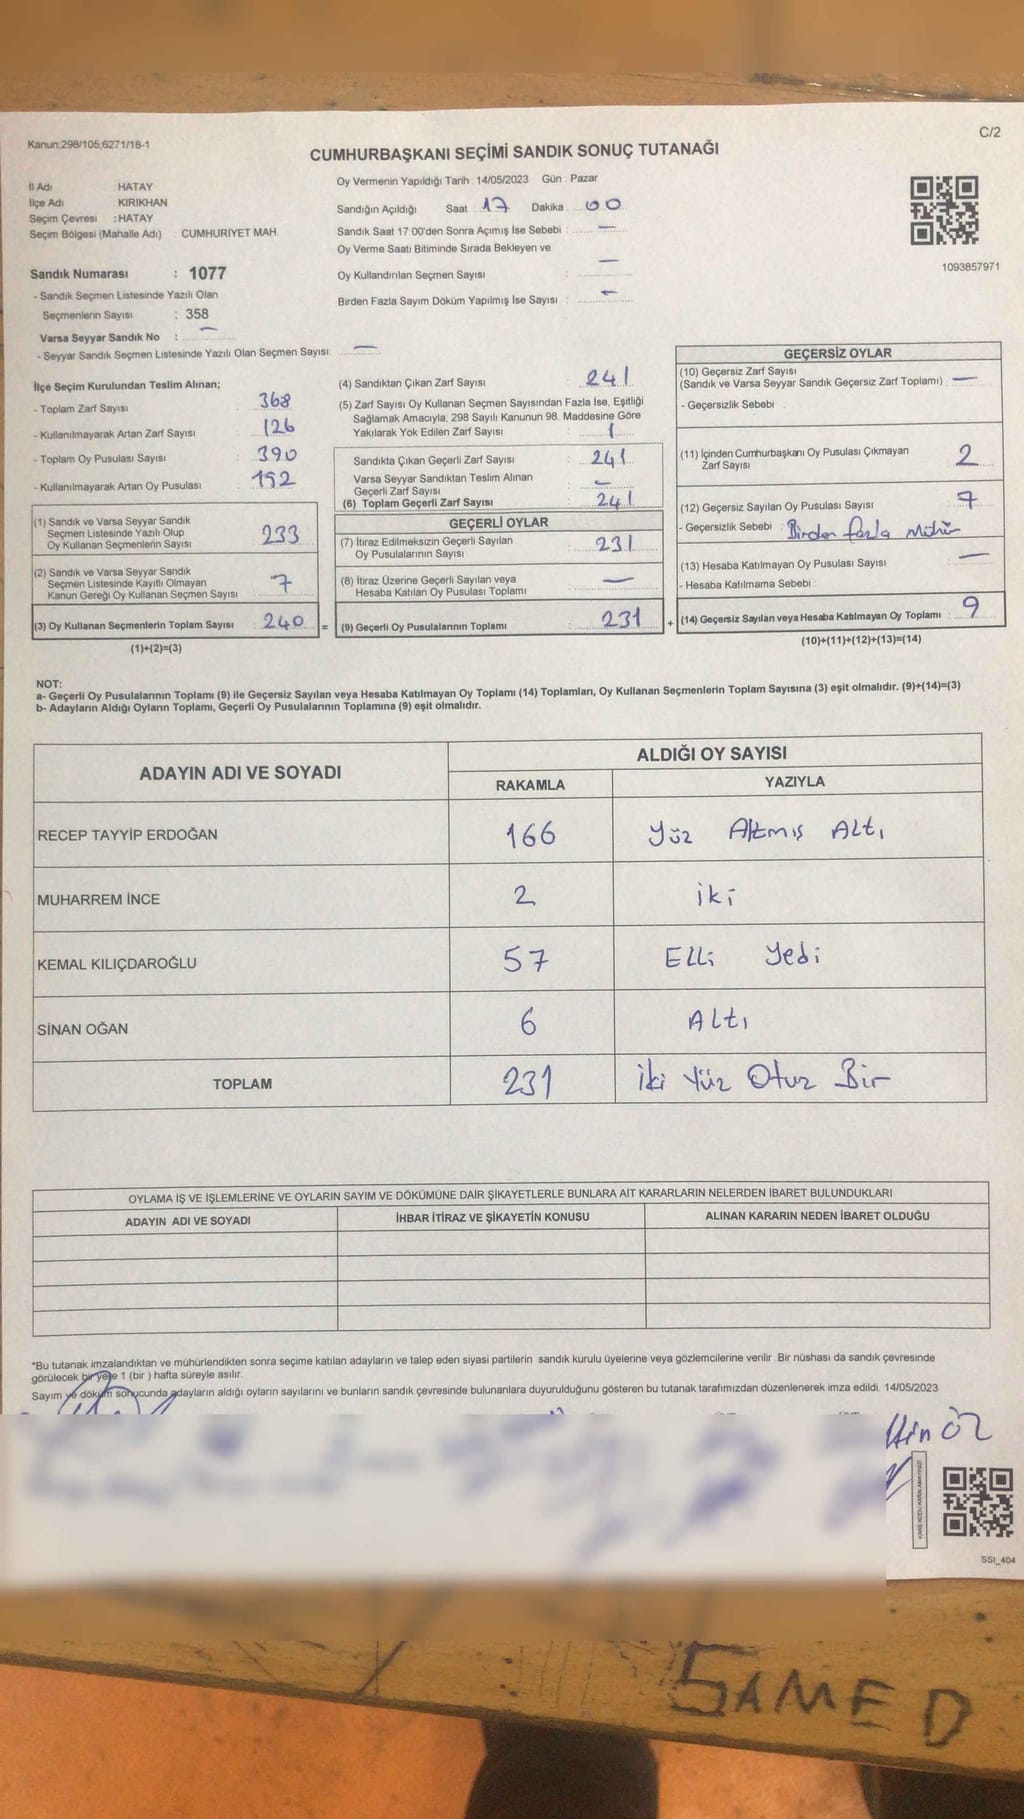 Kanun:298/105;6271/18-1
C/2
CUMHURBAŞKANI SEÇİMİ SANDIK SONUÇ TUTANAĞI
İl Adı HATAY
İlçe Adı KIRIKHAN
Seçim Çevresi : HATAY
Seçim Bölgesi (Mahalle Adı) : CUMHURİYET MAH
Sandık Numarası : 1077
- Sandık Seçmen Listesinde Yazılı Olan
Seçmenlerin Sayısı : 358
Varsa Seyyar Sandık No : —
- Seyyar Sandık Seçmen Listesinde Yazılı Olan Seçmen Sayısı: —
Oy Vermenin Yapıldığı Tarih : 14/05/2023 Gün : Pazar
Sandığın Açıldığı Saat 17 Dakika 00
Sandık Saat 17 00'den Sonra Açımış İse Sebebi : —
Oy Verme Saati Bitiminde Sırada Bekleyen ve
Oy Kullandırılan Seçmen Sayısı : —
Birden Fazla Sayım Döküm Yapılmış İse Sayısı : —
1093857971
İlçe Seçim Kurulundan Teslim Alınan;
- Toplam Zarf Sayısı : 368
- Kullanılmayarak Artan Zarf Sayısı : 126
- Toplam Oy Pusulası Sayısı : 390
- Kullanılmayarak Artan Oy Pusulası : 152
(1) Sandık ve Varsa Seyyar Sandık
Seçmen Listesinde Yazılı Olup
Oy Kullanan Seçmenlerin Sayısı 233
(2) Sandık ve Varsa Seyyar Sandık
Seçmen Listesinde Kayıtlı Olmayan
Kanun Gereği Oy Kullanan Seçmen Sayısı 7
(3) Oy Kullanan Seçmenlerin Toplam Sayısı : 240 =
(1)+(2)=(3)
(4) Sandıktan Çıkan Zarf Sayısı : 241
(5) Zarf Sayısı Oy Kullanan Seçmen Sayısından Fazla İse, Eşitliği
Sağlamak Amacıyla, 298 Sayılı Kanunun 98. Maddesine Göre
Yakılarak Yok Edilen Zarf Sayısı : 1
Sandıkta Çıkan Geçerli Zarf Sayısı : 241
Varsa Seyyar Sandıktan Teslim Alınan
Geçerli Zarf Sayısı : —
(6) Toplam Geçerli Zarf Sayısı : 241
GEÇERLİ OYLAR
(7) İtiraz Edilmeksizin Geçerli Sayılan
Oy Pusulalarının Sayısı : 231
(8) İtiraz Üzerine Geçerli Sayılan veya
Hesaba Katılan Oy Pusulası Toplamı : —
(9) Geçerli Oy Pusulalarının Toplamı : 231 +
GEÇERSİZ OYLAR
(10) Geçersiz Zarf Sayısı
(Sandık ve Varsa Seyyar Sandık Geçersiz Zarf Toplamı) : —
- Geçersizlik Sebebi :
(11) İçinden Cumhurbaşkanı Oy Pusulası Çıkmayan
Zarf Sayısı 2
(12) Geçersiz Sayılan Oy Pusulası Sayısı 7
- Geçersizlik Sebebi : Birden fazla mühür
(13) Hesaba Katılmayan Oy Pusulası Sayısı —
- Hesaba Katılmama Sebebi :
(14) Geçersiz Sayılan veya Hesaba Katılmayan Oy Toplamı : 9
(10)+(11)+(12)+(13)=(14)
NOT:
a- Geçerli Oy Pusulalarının Toplamı (9) ile Geçersiz Sayılan veya Hesaba Katılmayan Oy Toplamı (14) Toplamları, Oy Kullanan Seçmenlerin Toplam Sayısına (3) eşit olmalıdır. (9)+(14)=(3)
b- Adayların Aldığı Oyların Toplamı, Geçerli Oy Pusulalarının Toplamına (9) eşit olmalıdır.
ADAYIN ADI VE SOYADI ALDIĞI OY SAYISI
RAKAMLA YAZIYLA
RECEP TAYYİP ERDOĞAN 166 Yüz Altmış Altı
MUHARREM İNCE 2 İki
KEMAL KILIÇDAROĞLU 57 Elli Yedi
SİNAN OĞAN 6 Altı
TOPLAM 231 İki Yüz Otuz Bir
OYLAMA İŞ VE İŞLEMLERİNE VE OYLARIN SAYIM VE DÖKÜMÜNE DAİR ŞİKAYETLERLE BUNLARA AİT KARARLARIN NELERDEN İBARET BULUNDUKLARI
ADAYIN ADI VE SOYADI İHBAR İTİRAZ VE ŞİKAYETİN KONUSU ALINAN KARARIN NEDEN İBARET OLDUĞU
*Bu tutanak imzalandıktan ve mühürlendikten sonra seçime katılan adayların ve talep eden siyasi partilerin sandık kurulu üyelerine veya gözlemcilerine verilir. Bir nüshası da sandık çevresinde
görülecek bir yere 1 (bir ) hafta süreyle asılır.
Sayım ve döküm sonucunda adayların aldığı oyların sayılarını ve bunların sandık çevresinde bulunanlara duyurulduğunu gösteren bu tutanak tarafımızdan düzenlenerek imza edildi. 14/05/2023
SSI_404
SAMED